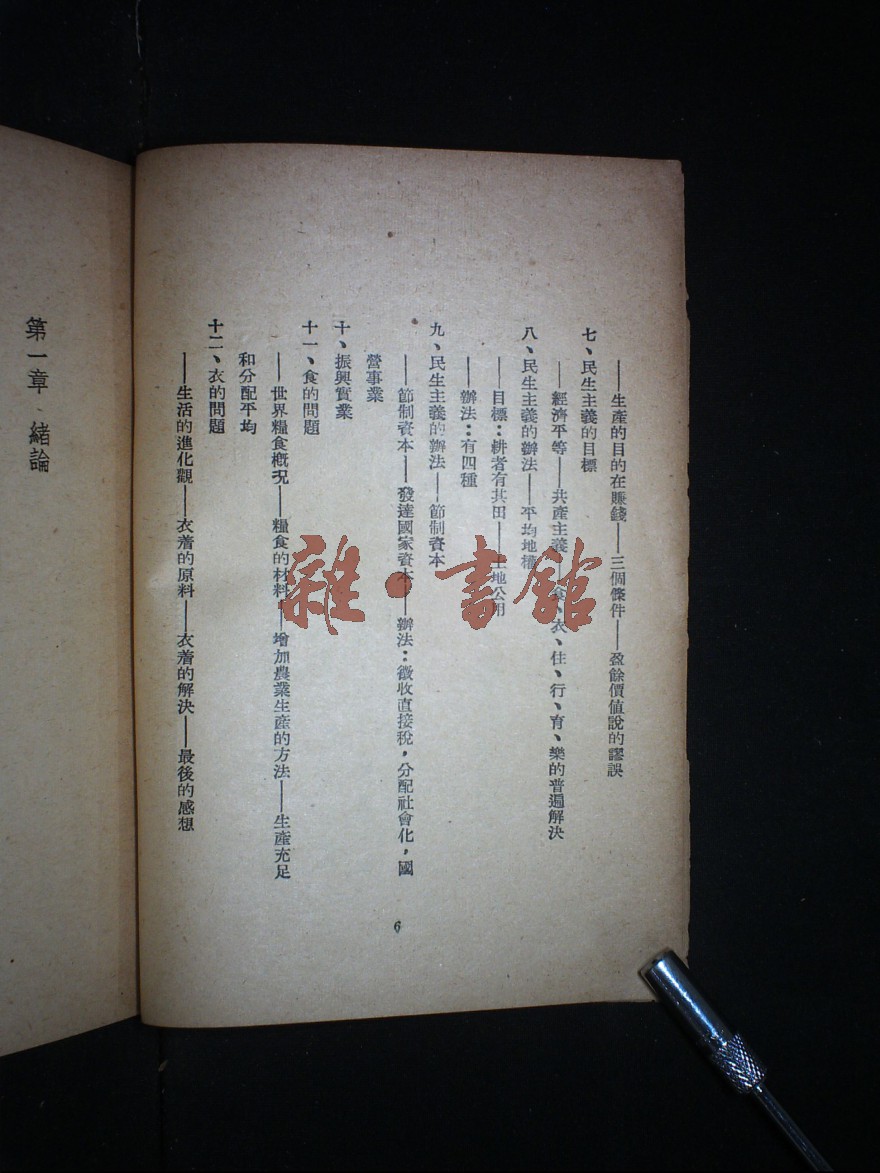 ——生產的目的在賺錢——三個條件——盈餘價值說的謬誤
七、民生主義的目標
——經濟平等——共產主義——食、衣、住、行、育、樂的普遍解決
八、民生主義的辦法——平均地權
——目標：耕者有其田——土地公用
——辦法：有四種
九、民生主義的辦法——節制資本
——節制資本——發達國家資本——辦法：徵收直接稅，分配社會化，國
營事業
十、振興實業
十一、食的問題
——世界糧食概況——糧食的材料——增加農業生產的方法——生產充足
和分配平均
十二、衣的問題
——生活的進化觀——衣着的原料——衣着的解決——最後的感想
6
第一章、緒論
雜·書館